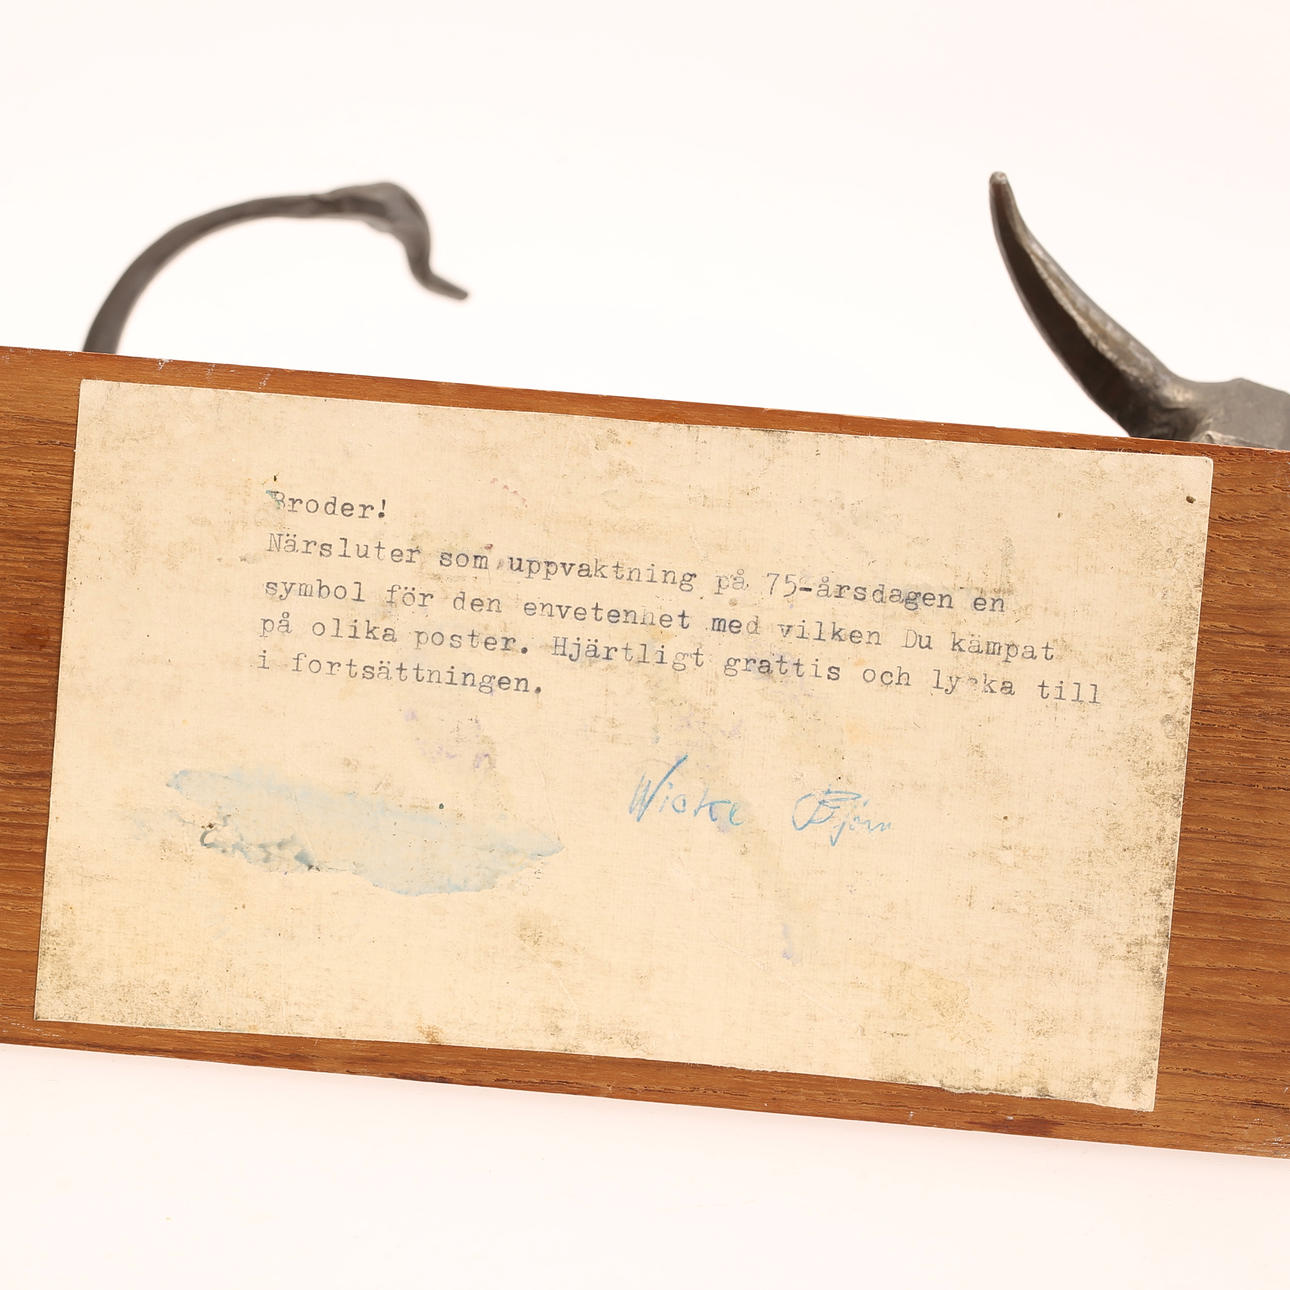 Broder!
Närsluter som uppvaktning på 75-årsdagen en
symbol för den envetenhet med vilken Du kämpat
på olika poster. Hjärtligt grattis och lycka till
i fortsättningen.
Björn